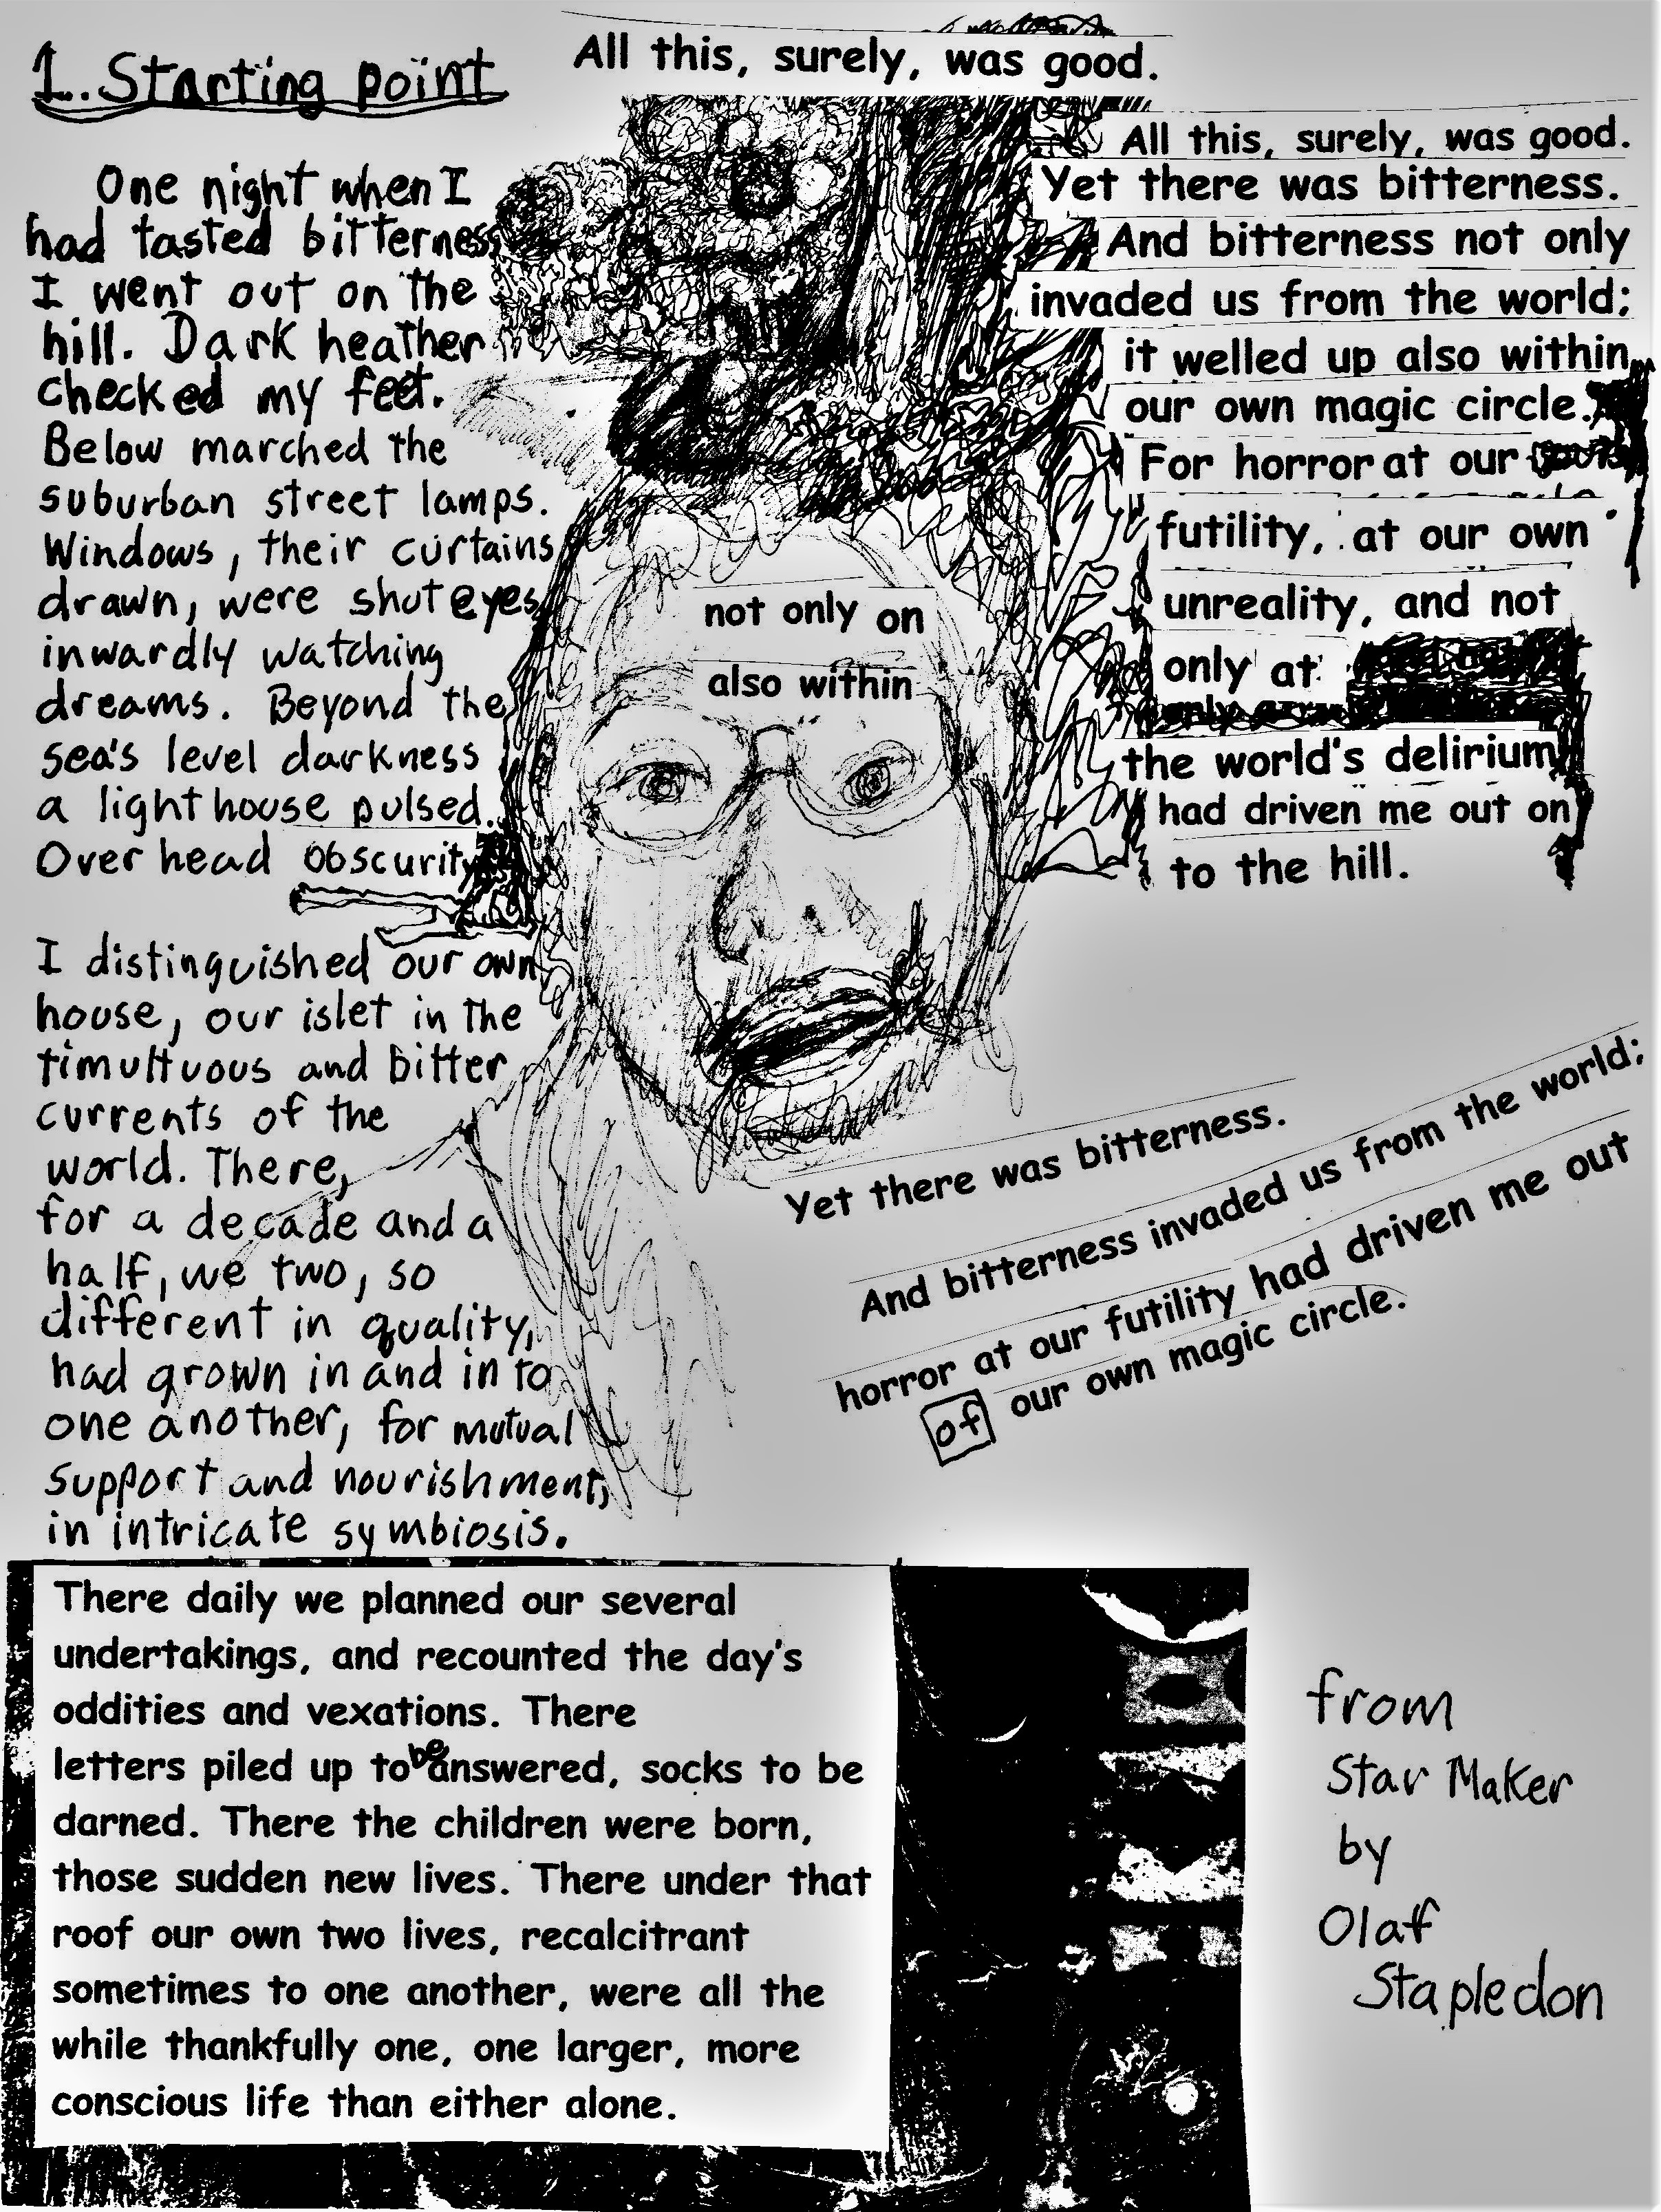 1. Starting point
One night when I
had tasted bitterness
I went out on the
hill. Dark heather
checked my feet.
Below marched the
suburban street lamps.
Windows, their curtains
drawn, were shut eyes
inwardly watching
dreams. Beyond the
sea's level darkness
a lighthouse pulsed.
Over head obscurity
I distinguished our own
house, our islet in the
timultuous and bitter
currents of the
world. There,
for a decade and a
half, we two, so
different in quality,
had grown in and in to
one another, for mutual
support and nourishment,
in intricate symbiosis.
There daily we planned our several
undertakings, and recounted the day's
oddities and vexations. There
letters piled up to be answered, socks to be
darned. There the children were born,
those sudden new lives. There under that
roof our own two lives, recalcitrant
sometimes to one another, were all the
while thankfully one, one larger, more
conscious life than either alone.
All this, surely, was good.
All this, surely, was good.
Yet there was bitterness.
And bitterness not only
invaded us from the world;
it welled up also within
our own magic circle.
For horror at our
futility, at our own
unreality, and not
only at
the world's delirium
had driven me out on
to the hill.
not only on
also within
Yet there was bitterness.
And bitterness invaded us from the world;
horror at our futility had driven me out
of our own magic circle.
from
Star Maker
by
Olaf
Stapledon